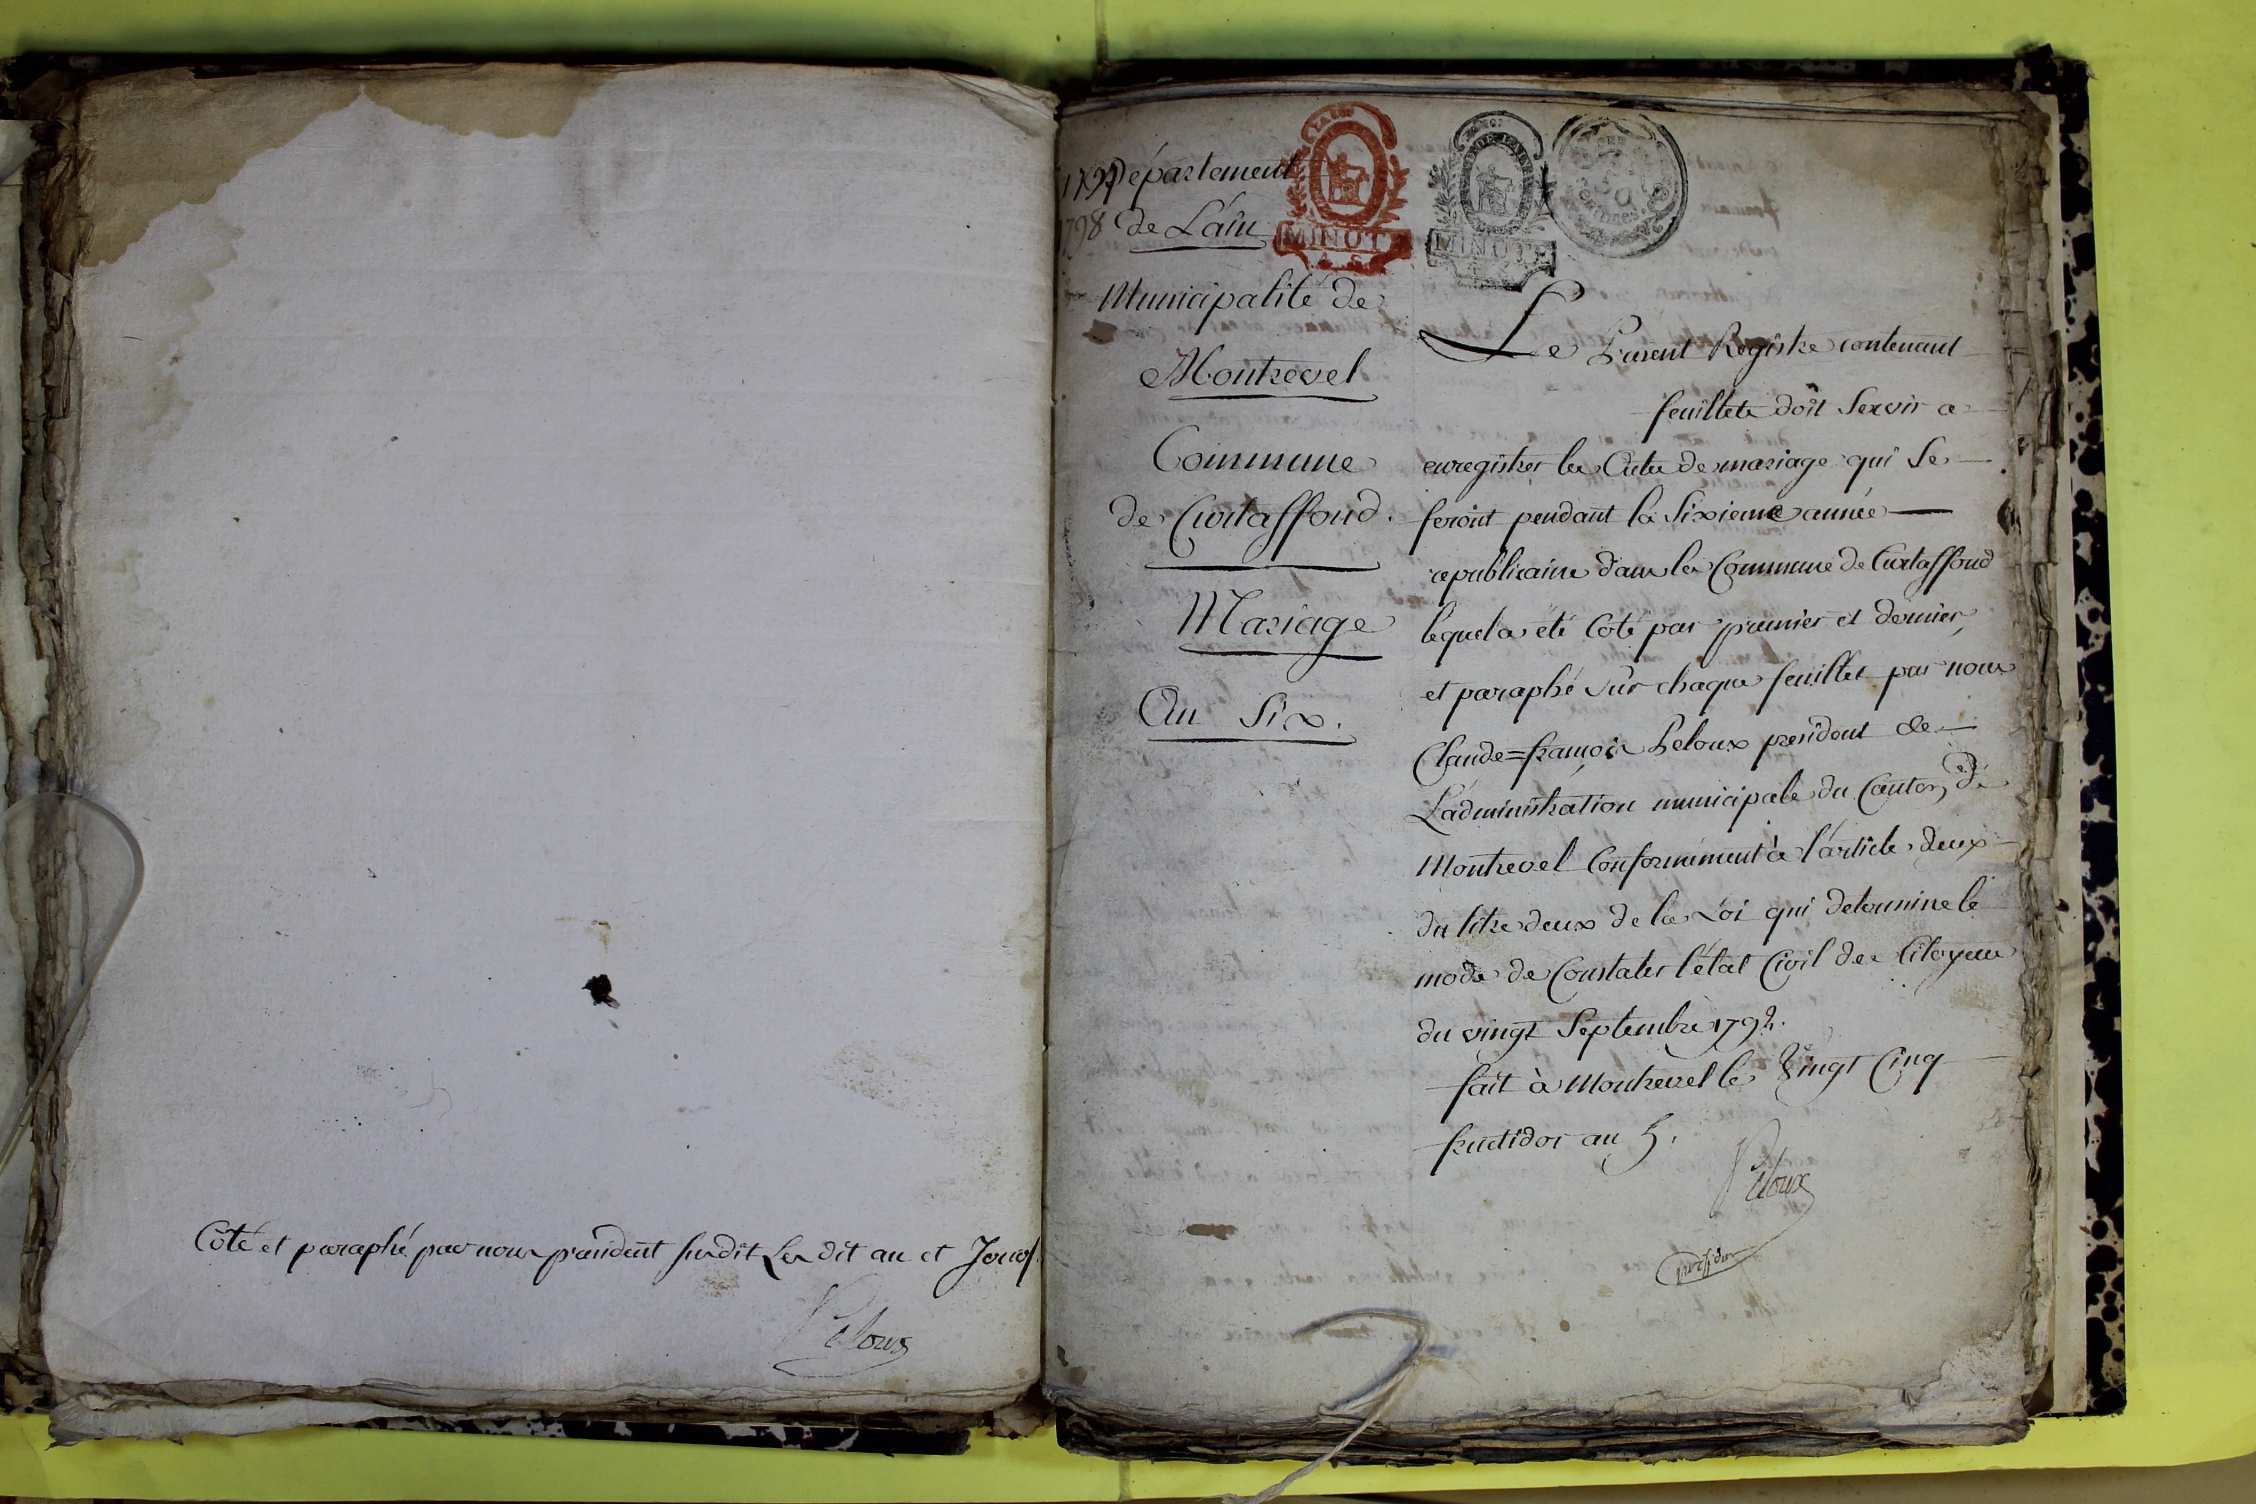 Coté et paraphé par nous president susdit Les dit an et Jours.
Peloux
1797
Département
1798
de L'ain
MINUTE
MINUTE
Municipalité de
Montrevel
Commune
de Curtaffond.
Mariage
An Six.
Le Present Registre contenant
feuillets doit Servir a
enregistrer les Actes de mariage qui Se
feront pendant la Sixieme année
republicaine dans la Commune de Curtaffond
lequel a été Coté par premier et dernier,
et paraphé sur chaque feuillet par nous
Claude=françois Peloux president de
L'administration municipale du Canton de
Montrevel Conformément à l'article deux
du titre deux de la Loi qui determine le
mode de Constater l'état Civil des Citoyens
du vingt Septembre 1792.
fait à Montrevel le Vingt Cinq
fructidor an 5.
Peloux
president